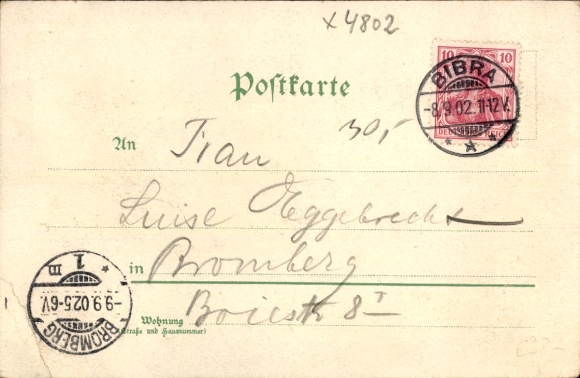 x 4802
Postkarte
10 10
DEUTSCHES REICH
BIBRA
-8.9.02.11-12V.
30,-
An Frau
Luise Eggebrecht
in Bromberg
Wohnung Boiestr 8 I
(Straße und Hausnummer)
1 m
-9.9.02.5-6V.
BROMBERG